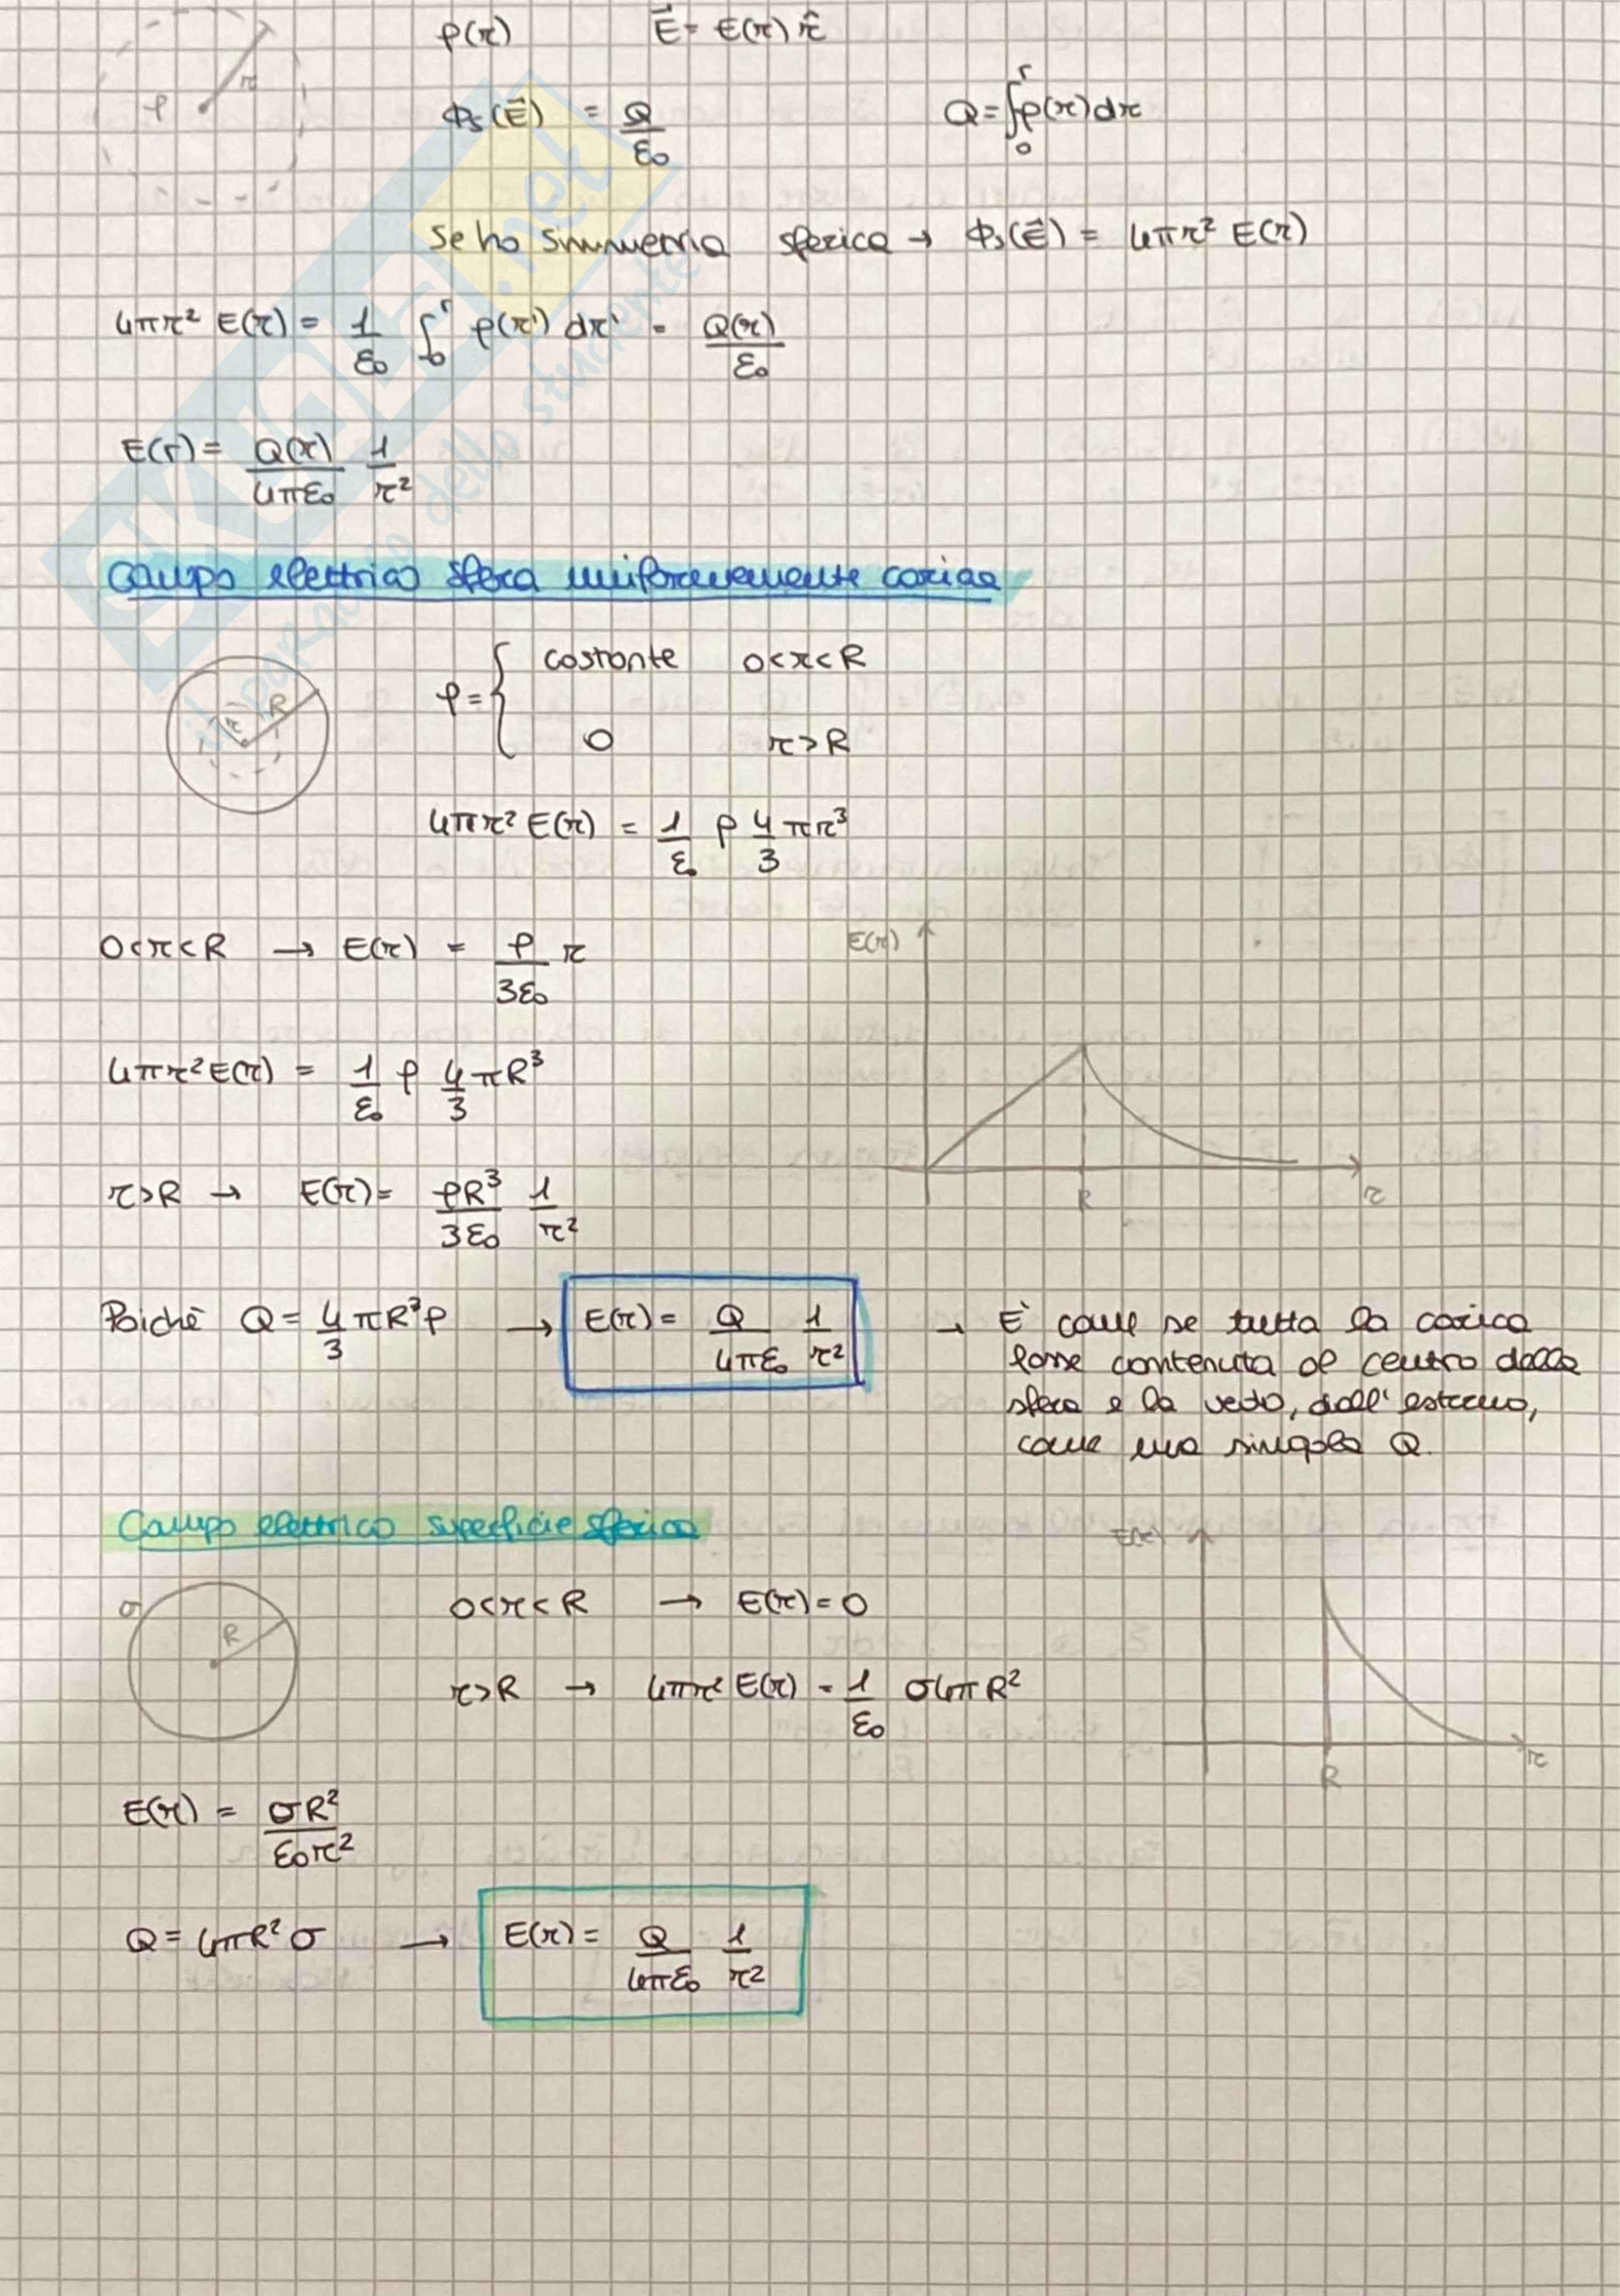 ρ(r) E⃗ = E(r) r̂
ρ r
Φs(E⃗) = Q/ε0 Q = ∫0^r ρ(r)dr
se ho simmetria sferica → Φs(E⃗) = 4πr² E(r)
4πr² E(r) = 1/ε0 ∫0^r ρ(r') dr' = Q(r)/ε0
E(r) = Q(r)/4πε0 1/r²
Campo elettrico sfera uniformemente carica
r R
ρ = { costante 0<r<R
0 r>R
4πr² E(r) = 1/ε0 ρ 4/3 πr³
0<r<R → E(r) = ρ/3ε0 r
E(r)
4πr² E(r) = 1/ε0 ρ 4/3 πR³
r>R → E(r) = ρR³/3ε0 1/r²
R r
Poichè Q = 4/3 πR³ρ → E(r) = Q/4πε0 1/r² → È come se tutta la carica
fosse contenuta al centro della
sfera e la vedo, dall'esterno,
come una singola Q.
Campo elettrico superficie sferica
E(r)
σ R
0<r<R → E(r) = 0
r>R → 4πr² E(r) = 1/ε0 σ4πR²
R r
E(r) = σR²/ε0r²
Q = 4πR²σ → E(r) = Q/4πε0 1/r²
SKUOLA.net
il paradiso dello studente